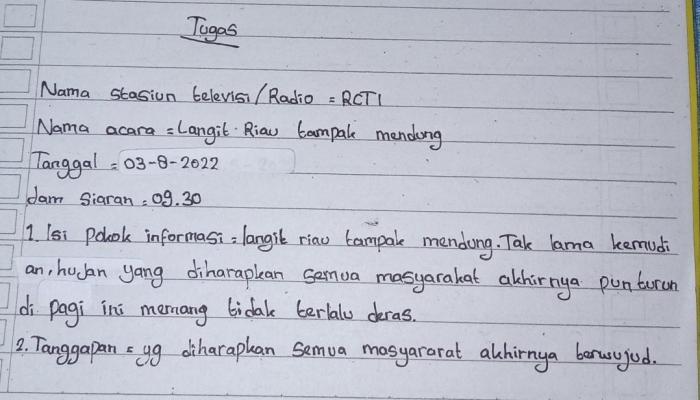 Tugas
Nama stasiun televisi/Radio = RCTI
Nama acara = Langit Riau tampak mendung
Tanggal = 03-8-2022
Jam Siaran = 09.30
1. Isi Pokok informasi = langit riau tampak mendung. Tak lama kemudi
an, hujan yang diharapkan semua masyarakat akhirnya pun turun
di pagi ini memang tidak terlalu deras.
2. Tanggapan = yg diharapkan semua masyararat akhirnya berwujud.